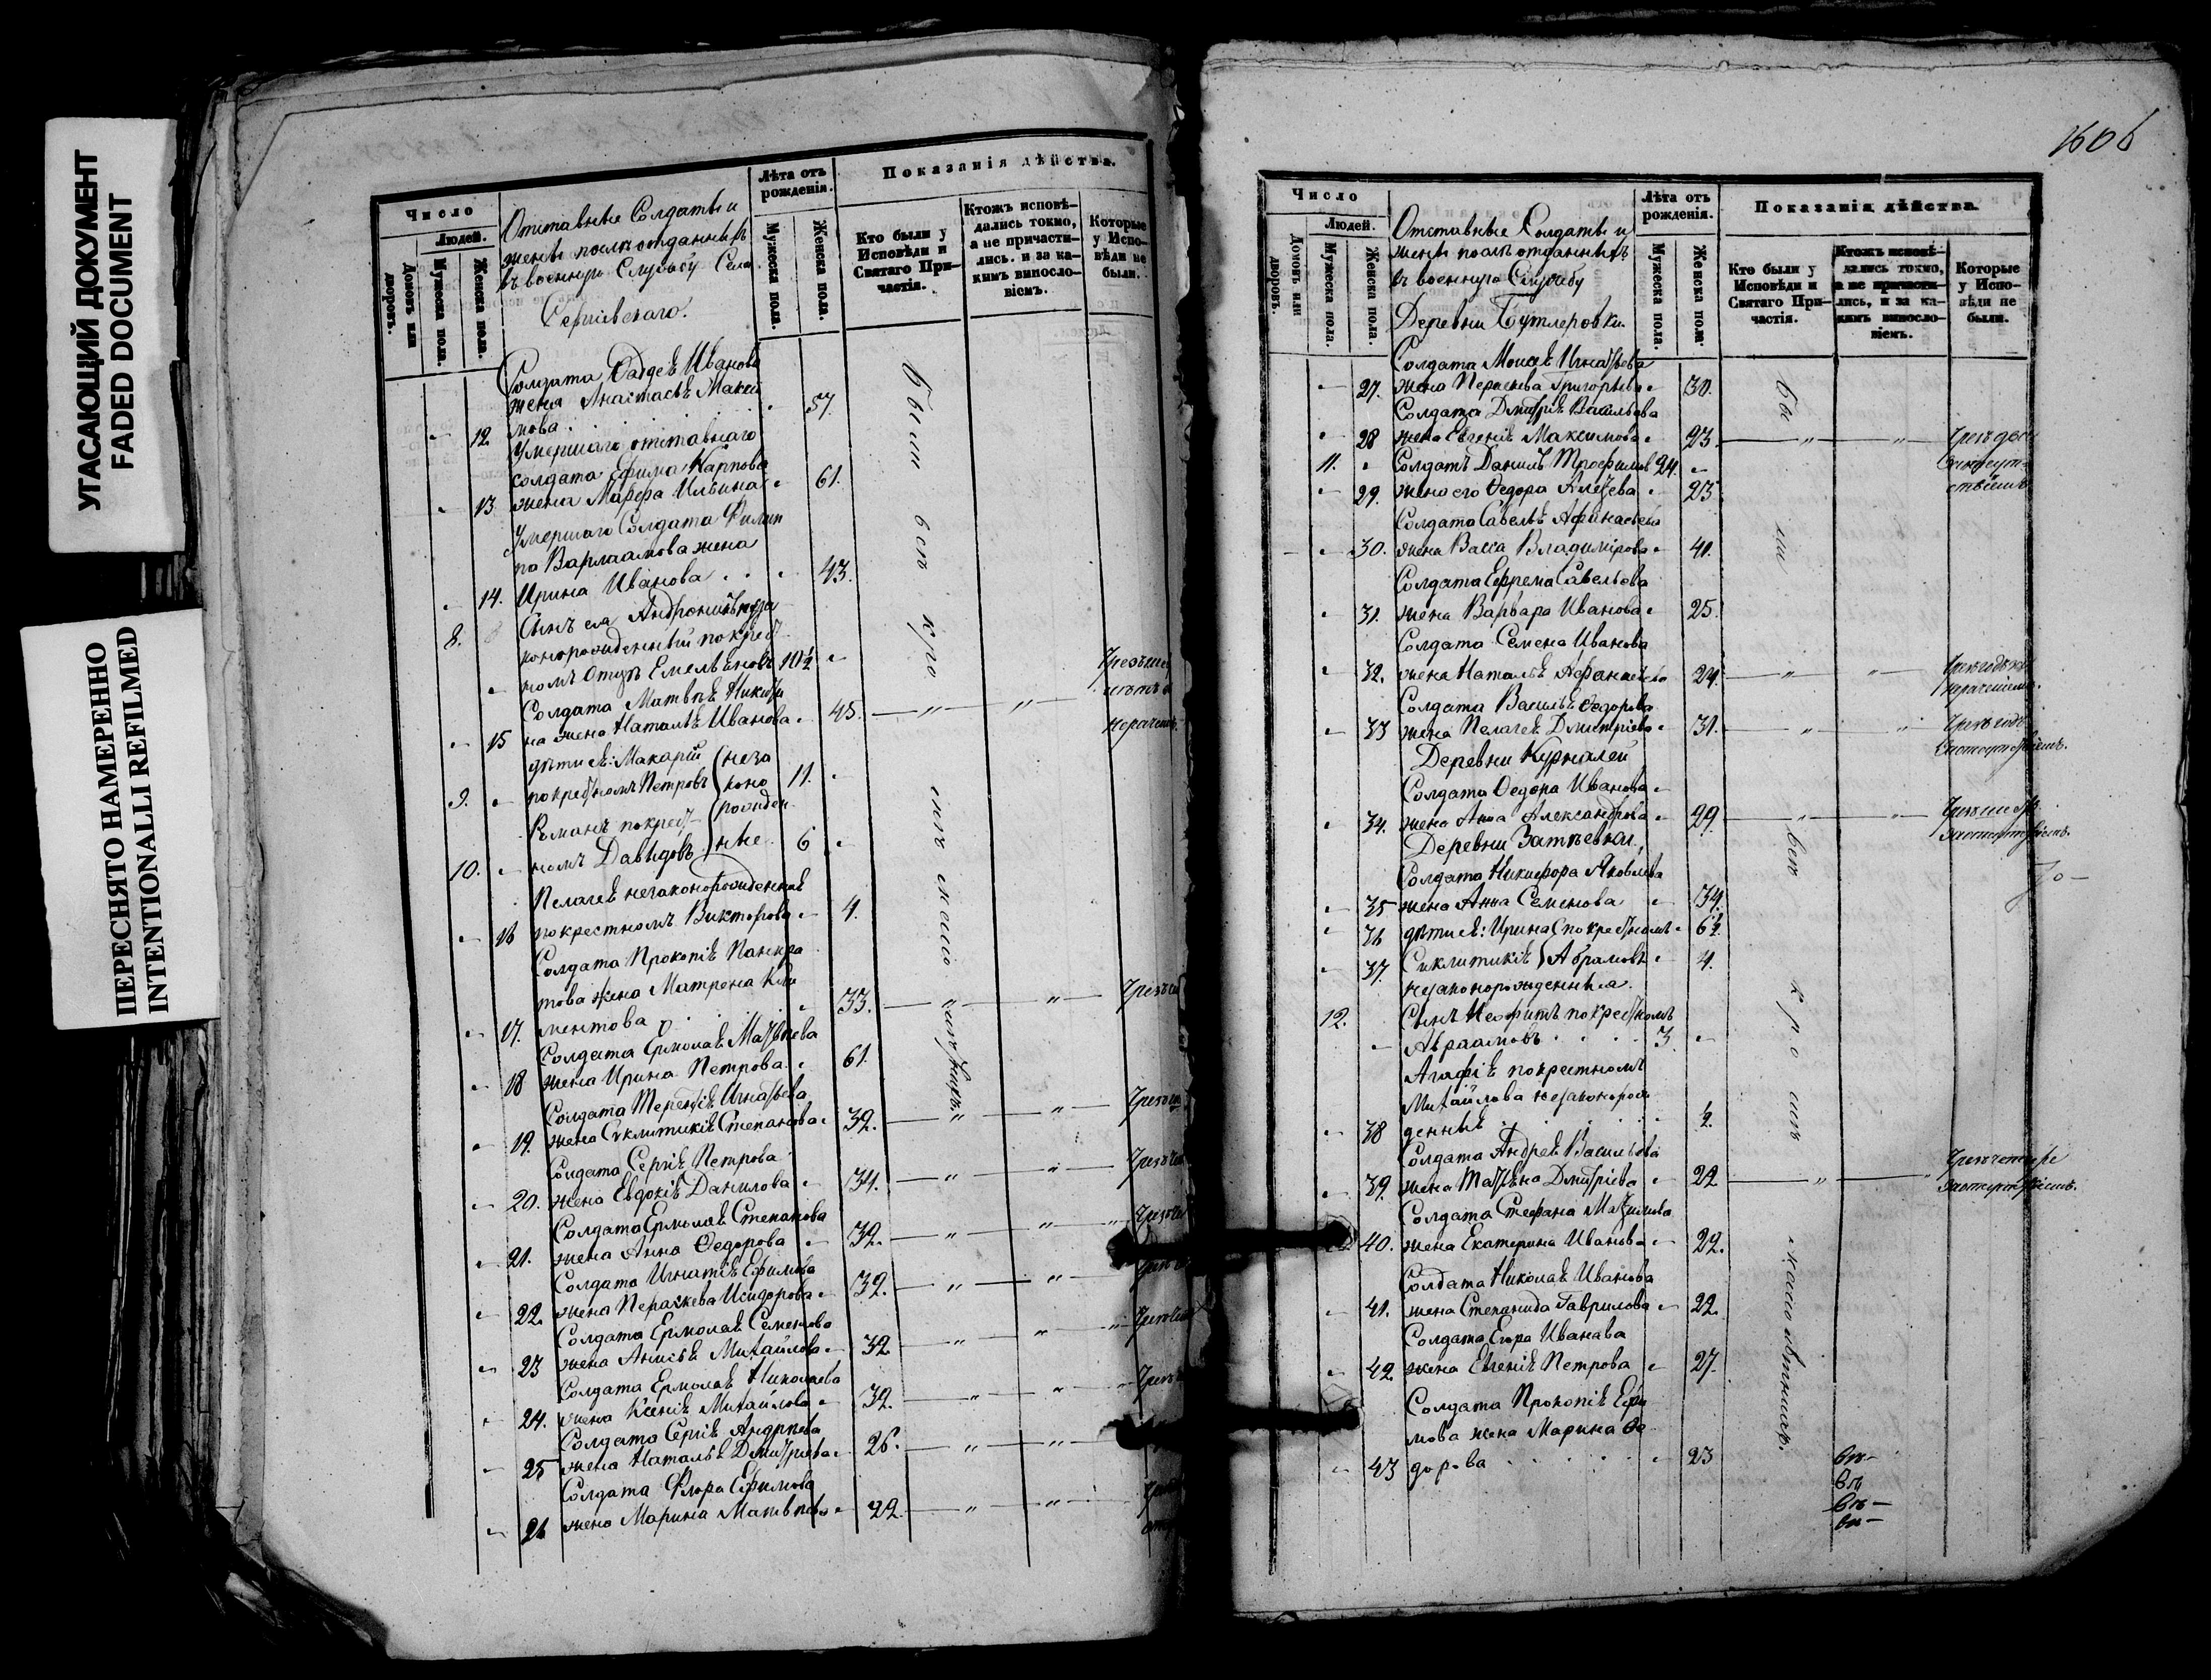 УГАСАЮЩИЙ ДОКУМЕНТ
FADED DOCUMENT
ПЕРЕСНЯТО НАМЕРЕННО
INTENTIONALLI REFILMED
Число
Людей.
Домовъ или дворовъ.
Мужеска пола.
Женска пола.
Отставные Солдаты и
жены ихъ отданныхъ
въ военную Службу Села
Сергіевскаго.
Лѣта отъ рожденія.
Мужеска пола.
Женска пола.
Показанія дѣйства.
Кто были у Исповѣди и Святаго При-частія.
Ктожъ исповѣ-дались токмо, а не причасти-лись. и за ка-кимъ виносло-віемъ.
Которые у Испо-вѣди не были.
Солдата Фадѣя Иванова
жена Анастасья Макси
12 мова 57.
Умершаго отставнаго
солдата Ефима Карпова
13 жена Марфа Ильина 61.
Умершаго Солдата Филип
па Варлаамова жена
14. Ирина Иванова 43.
8. Сынъ ея Андроникъ неза
конорожденный по крест
номъ отцѣ Емельяновъ 10½
Солдата Матвѣя Никити
15 на жена Наталья Иванова 45.
дѣти ея: Макарій неза
9. по крестномъ Петровъ коно 11.
Романъ по крест рожден
10. номъ Давыдовъ ные 6
Пелагея незаконорожденная
16 по крестномъ Викторова 4.
Солдата Прокопія Панкра
това жена Матрена Кли
17. ментова 33.
Солдата Ермолая Матвѣева
18 жена Ирина Петрова 61.
Солдата Терентія Игнатьева
19. жена Сиклитикія Степанова 32.
Солдата Сергія Петрова
20. жена Евдокія Данилова 34.
Солдата Ермолая Степанова
21. жена Анна Ѳедорова 32.
Солдата Игнатія Ефимова
22. жена Параскева Исидорова 32.
Солдата Ермолая Семенова
23 жена Анисья Михайлова 32
Солдата Ермолая Николаева
24. жена Ксенія Михайлова 32.
Солдата Сергія Андреева
25 жена Наталья Дмитріева 26.
Солдата Флора Ефимова
26 жена Марина Матвѣева 22.
1606
Число
Людей.
Домовъ или дворовъ.
Мужеска пола.
Женска пола.
Отставные Солдаты и
жены ихъ отданныхъ
въ военную Службу
Деревни Бутлеровки
Лѣта отъ рожденія.
Мужеска пола.
Женска пола.
Показанія дѣйства.
Кто были у Исповѣди и Святаго При-частія.
Ктожъ исповѣ-дались токмо, а не причасти-лись, и за ка-кимъ виносло-віемъ.
Которые у Испо-вѣди не были.
Солдата Моисея Игнатьева
27. жена Параскева Григорьева 30.
Солдата Дмитрія Васильева
28 жена Евгенія Максимова 23
11. Солдатъ Данилъ Трофимовъ 24.
29. жена его Ѳедора Алексѣева 23
Солдата Савелья Афанасьева
30. жена Васса Владимірова 41.
Солдата Ефрема Савельева
31. жена Варвара Иванова 25.
Солдата Семена Иванова
32. жена Наталья Афанасьева 24.
Солдата Василья Ѳедорова
33 жена Пелагея Дмитріева 31.
Деревни Курналей
Солдата Ѳедора Иванова
34. жена Анна Александрова 29.
Деревни Затѣевки
Солдата Никифора Яковлева
35 жена Анна Семенова 34.
36 дѣти ея: Ирина по крестномъ 6½
37. Сиклитикія Абрамовы 4.
незаконорожденныя.
12. Сынъ Неофитъ по крестномъ
Авраамовъ 3.
Агафія по крестномъ
Михайлова незаконорож
38 денная ½
Солдата Андрея Васильева
39. жена Татьяна Дмитріева 22
Солдата Стефана Максимова
40. жена Екатерина Иванова 22.
Солдата Николая Иванова
41. жена Степанида Гаврилова 22.
Солдата Егора Иванова
42. жена Евгенія Петрова 27.
Солдата Прокопія Ефи
мова жена Марина Ѳе
43 дорова 23